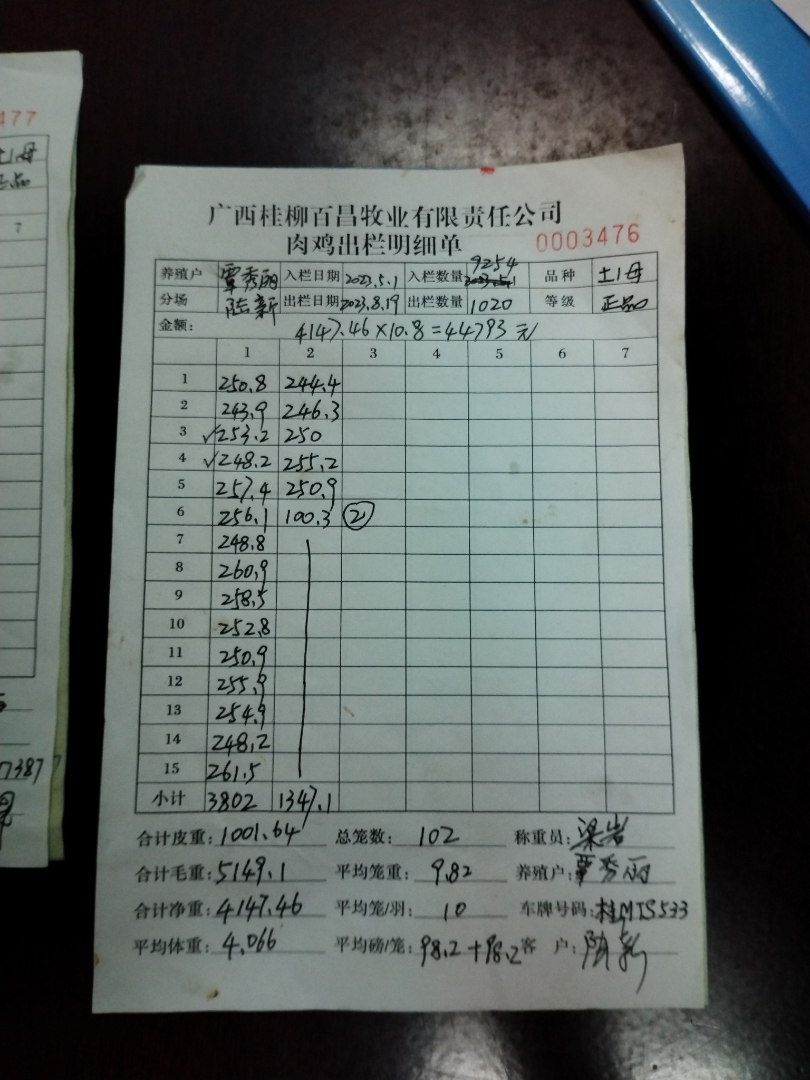 477
土1母
正品
7
7387
广西桂柳百昌牧业有限责任公司
肉鸡出栏明细单 0003476
养殖户 覃秀丽 入栏日期 2023.5.1 入栏数量 9254 品种 土1母
分场 陆新 出栏日期 2023.8.19 出栏数量 1020 等级 正品
金额: 4147.46×10.8=44793元
1 2 3 4 5 6 7
1 250.8 244.4
2 243.9 246.3
3 √253.2 250
4 √248.2 255.2
5 257.4 250.9
6 256.1 100.3 ②
7 248.8
8 260.9
9 258.5
10 252.8
11 250.9
12 255.9
13 254.9
14 248.2
15 261.5
小计 3802 1347.1
合计皮重: 1001.64 总笼数: 102 称重员: 梁岩
合计毛重: 5149.1 平均笼重: 9.82 养殖户: 覃秀丽
合计净重: 4147.46 平均笼/羽: 10 车牌号码: 桂MTS533
平均体重: 4.066 平均磅/笼: 98.2+98.2 客 户: 陆新